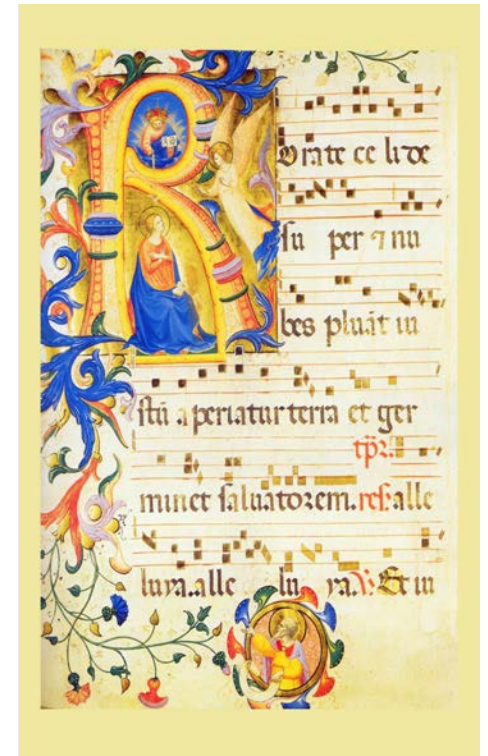 Rorate ce li de
su per ⁊ nu
bes pluāt iu
stū aperiatur terra et ger
minet saluatorem. alle
luya. alle lu ya. Et in